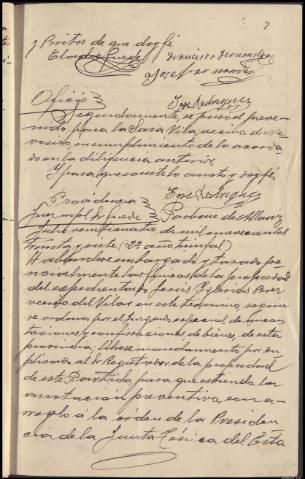 7
y Peritos de que doy fé
Claudio Guede Francisco Fernandez
José Fernandez
Oficio José Rodriguez
Seguidamente, se puso el preve-
nido, para la Sara Vila, vecina de Re-
vento, en cumplimiento de lo acorda-
do en la diligencia anterior.
Y para que conste lo anoto y doy fé,
José Rodriguez
Providencia
Juez mpal Sr Guede Puedane de Allariz
Julio veinticuatro de mil novecientos
treinta y siete (2º año triunfal)
Habiendose embargado y tasado pe-
ricialmente las fincas de la propiedad
del expedientado Jesús Iglesias
vecino del Vilar en este termino, segun
se ordena por el Juzgado especial de incau-
taciones y confiscaciones de bienes, de esta
provincia; librese mandamiento por du-
plicado al Sr Registrador de la propiedad
de este Partido para que extienda la
anotacion preventiva, con a-
rreglo á la orden de la Presiden-
cia de la Junta Técnica del Esta